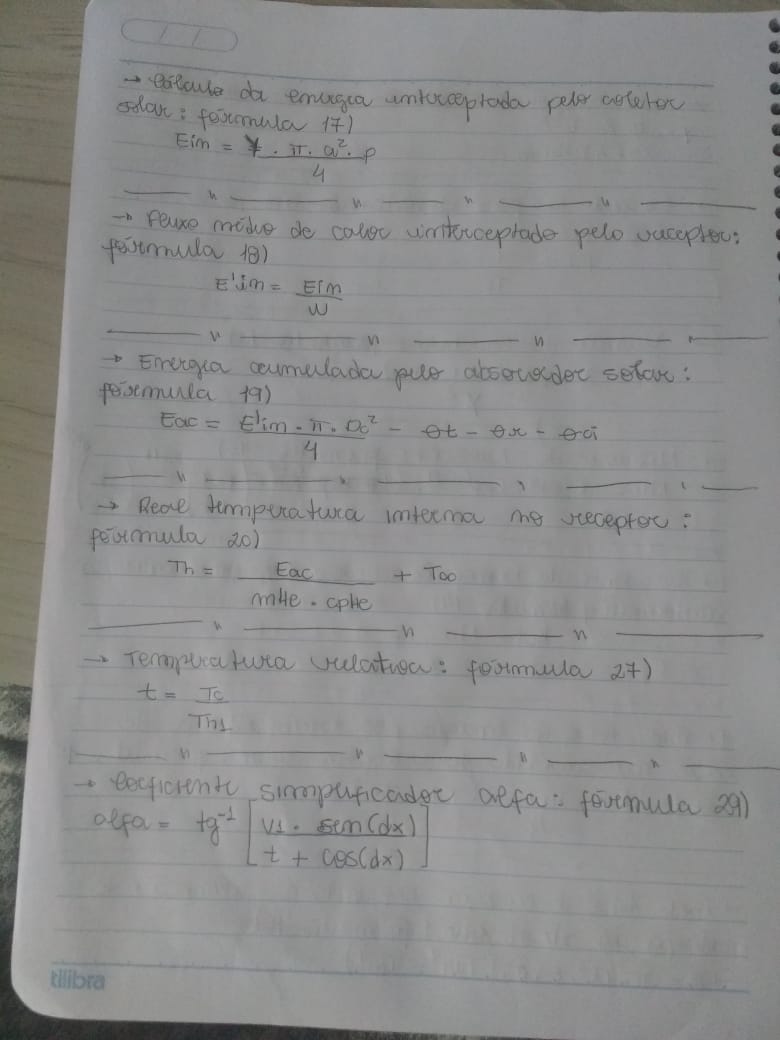 → Cálculo da energia interceptada pelo coletor
solar: fórmula 17)
Eim = γ . π . a² . p
4
→ Fluxo médio de calor interceptado pelo receptor:
fórmula 18)
E'im = Eim
W
→ Energia acumulada pelo absorvedor solar:
fórmula 19)
Eac = E'im . π . Dc² - θt - θr - θci
4
→ Real temperatura interna no receptor:
fórmula 20)
Th = Eac + T∞
mHe . cpHe
→ Temperatura relativa: fórmula 27)
t = Tc
Th1
→ Coeficiente simplificador alfa: fórmula 29)
alfa = tg⁻¹ [V1 . sen(dx)
t + cos(dx)]
tilibra